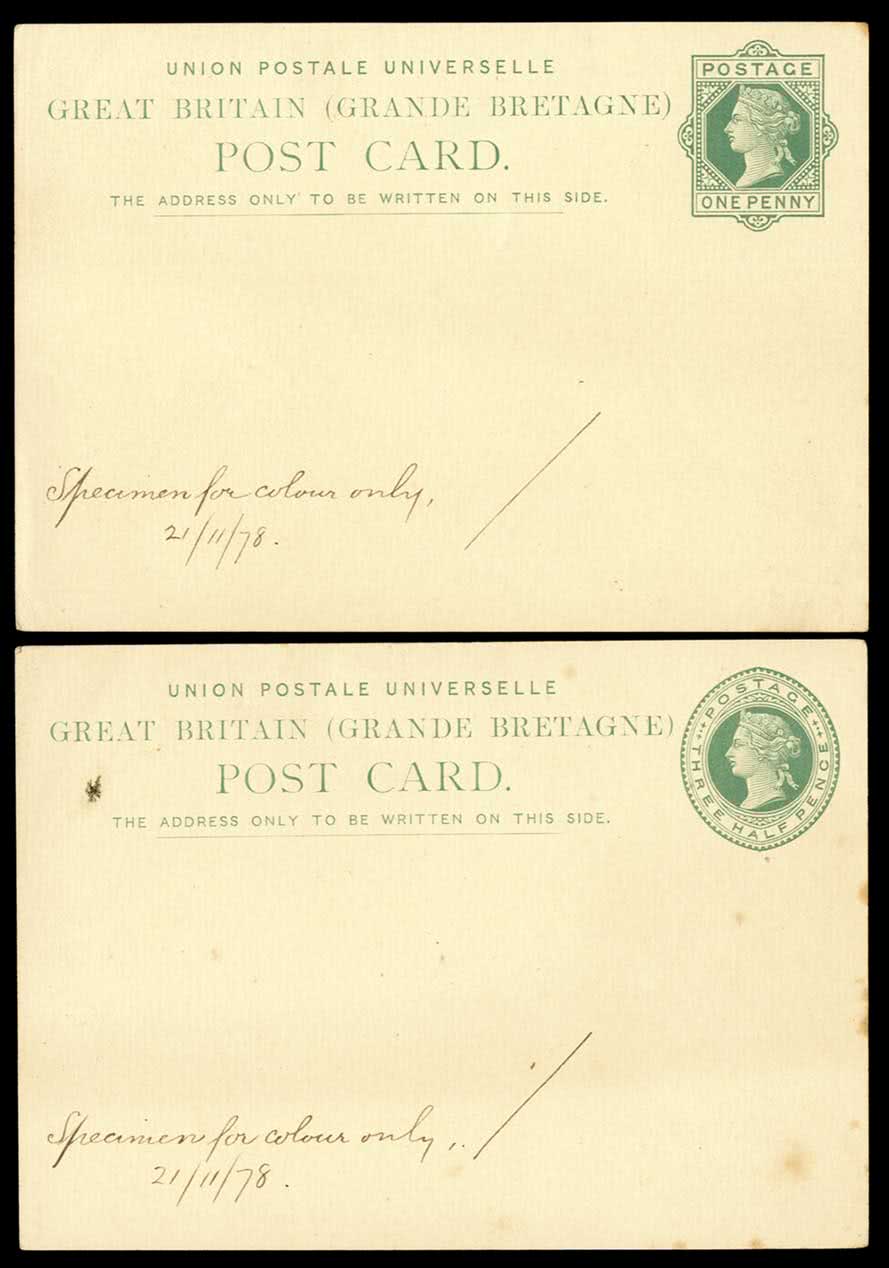 UNION POSTALE UNIVERSELLE
GREAT BRITAIN (GRANDE BRETAGNE)
POST CARD.
THE ADDRESS ONLY TO BE WRITTEN ON THIS SIDE.
POSTAGE
ONE PENNY
Specimen for colour only,
21/11/78.
UNION POSTALE UNIVERSELLE
GREAT BRITAIN (GRANDE BRETAGNE)
POST CARD.
THE ADDRESS ONLY TO BE WRITTEN ON THIS SIDE.
POSTAGE
THREE HALF PENCE
Specimen for colour only,.
21/11/78.